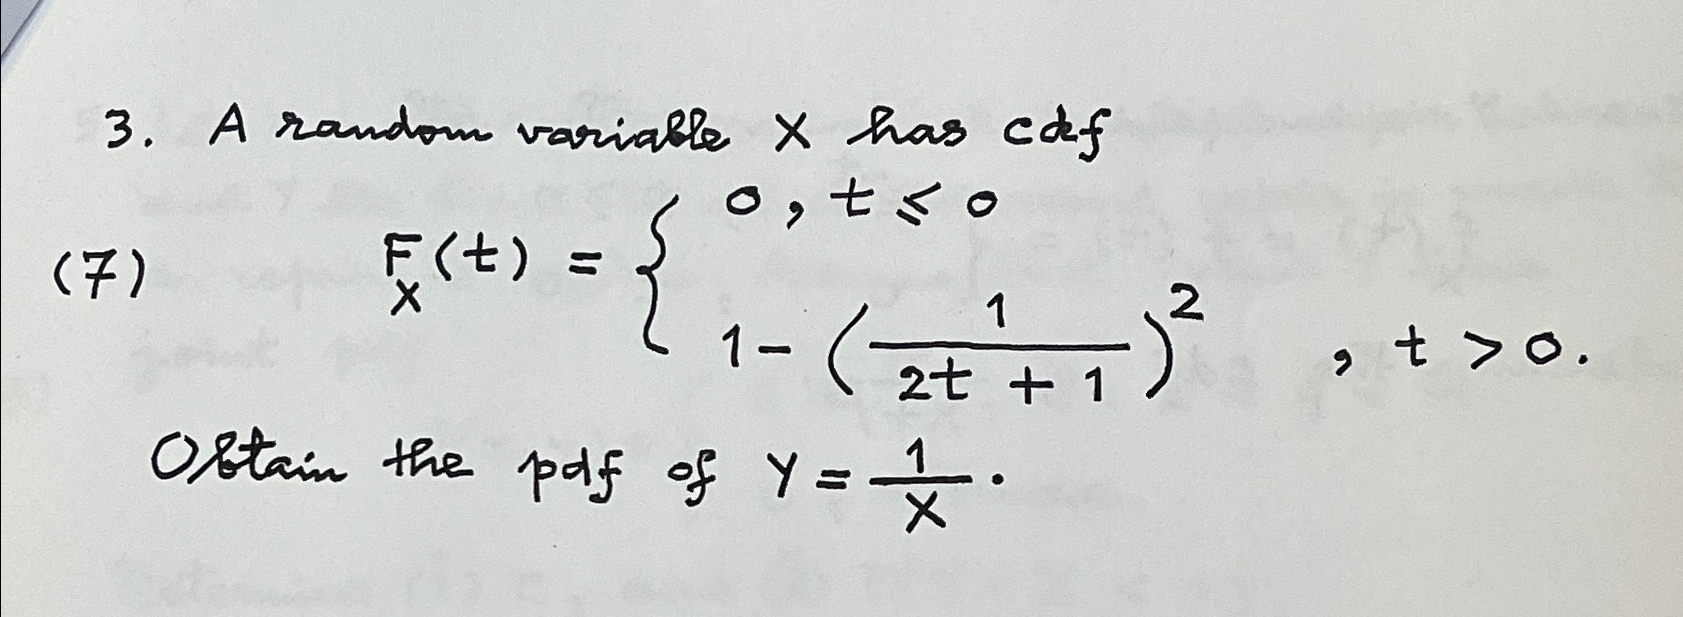 3. A random variable X has cdf
(7) F_X(t) = { 0, t ≤ 0
1 - (1/(2t + 1))^2, t > 0.
Obtain the pdf of Y = 1/X.